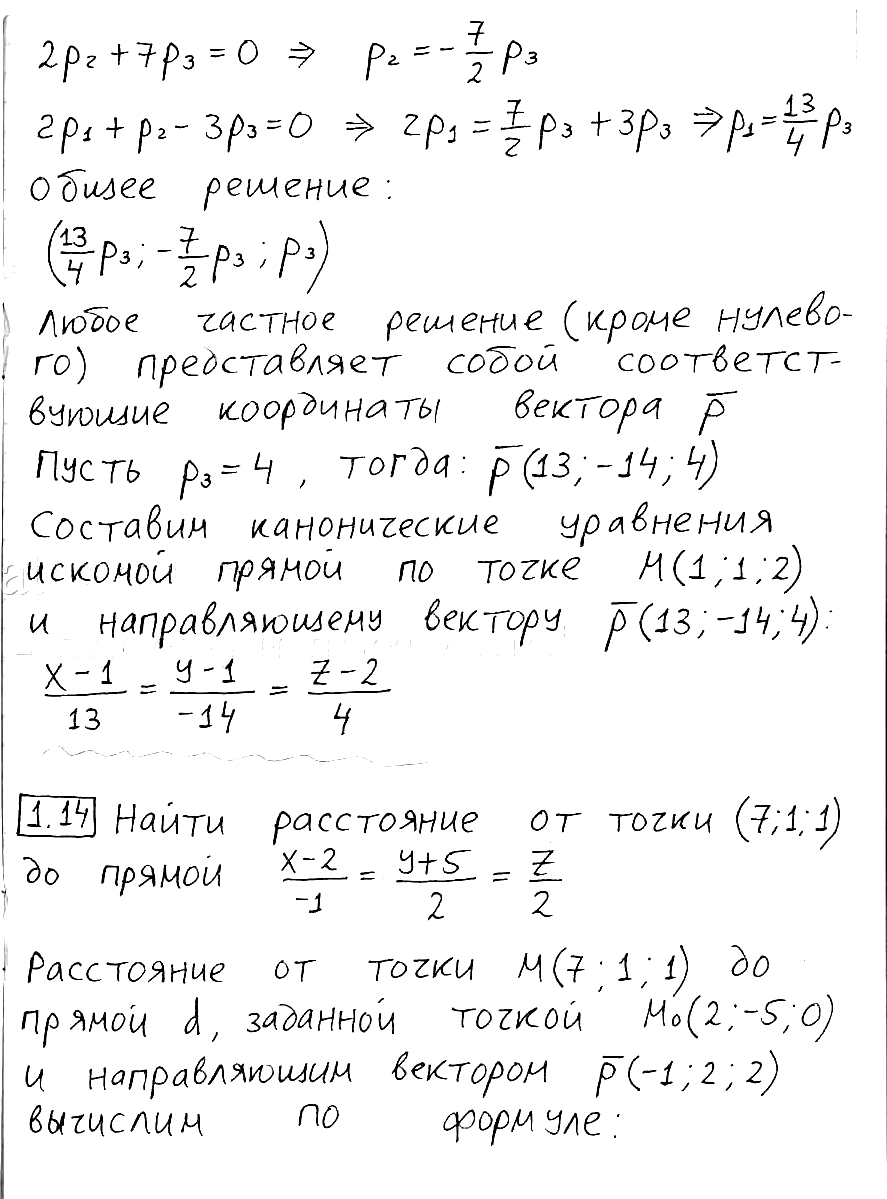 2p₂ + 7p₃ = 0 ⇒ p₂ = -7/2 p₃
2p₁ + p₂ - 3p₃ = 0 ⇒ 2p₁ = 7/2 p₃ + 3p₃ ⇒ p₁ = 13/4 p₃
Общее решение:
(13/4 p₃; -7/2 p₃; p₃)
Любое частное решение (кроме нулево-
го) представляет собой соответст-
вующие координаты вектора p̅
Пусть p₃ = 4, тогда: p̅(13; -14; 4)
Составим канонические уравнения
искомой прямой по точке M(1; 1; 2)
и направляющему вектору p̅(13; -14; 4):
(x-1)/13 = (y-1)/-14 = (z-2)/4
1.14 Найти расстояние от точки (7; 1; 1)
до прямой (x-2)/-1 = (y+5)/2 = z/2
Расстояние от точки M(7; 1; 1) до
прямой d, заданной точкой M₀(2; -5; 0)
и направляющим вектором p̅(-1; 2; 2)
вычислим по формуле: